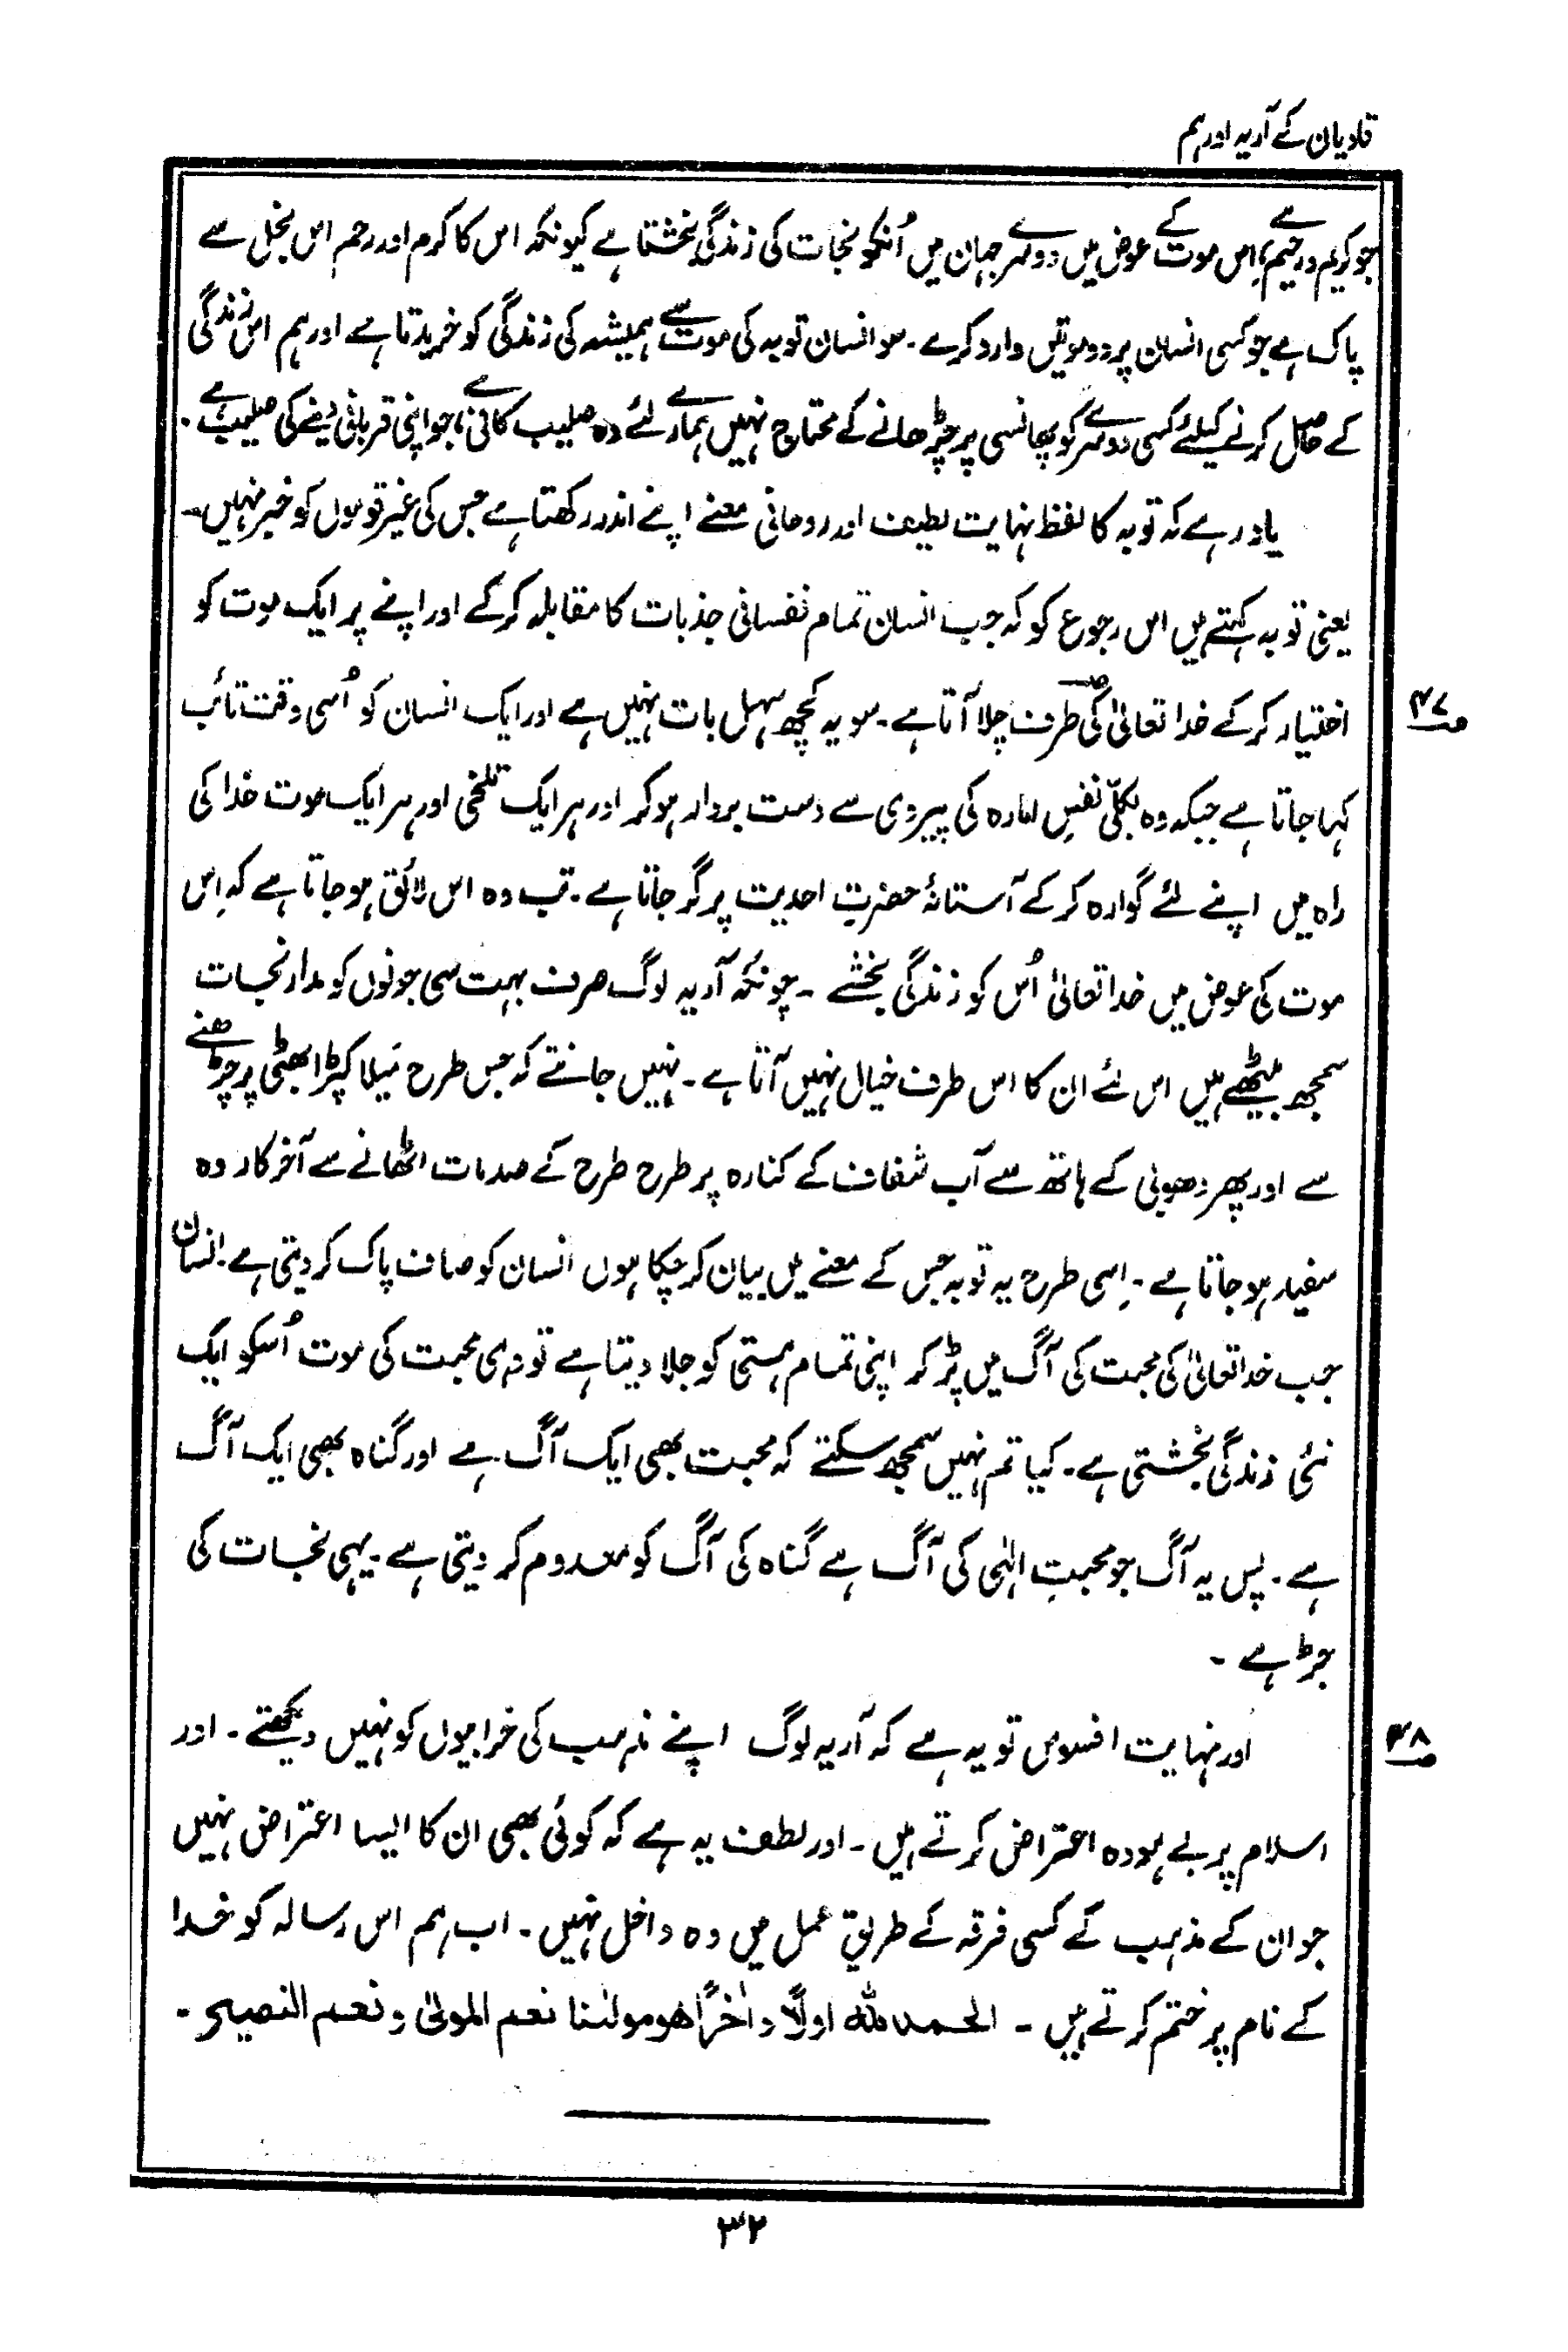 قادیان کے آریہ اور ہم
جو کریم و رحیم ہے اِس موت کے عوض میں دوسرے جہان میں اُنکو نجات کی زندگی بخشتا ہے کیونکہ اس کا کرم اور رحم اس بخل سے
پاک ہے جو کسی انسان پر دو موتیں وارد کرے۔ سو انسان توبہ کی موت سے ہمیشہ کی زندگی کو خریدتا ہے اور ہم اس زندگی
کے حاصل کرنے کیلئے کسی دوسرے کو پھانسی پر چڑھانے کے محتاج نہیں ہمارے لئے وہ صلیب کافی ہے جو اپنی قربانی دینے کی صلیب ہے۔
یاد رہے کہ توبہ کا لفظ نہایت لطیف اور روحانی معنے اپنے اندر رکھتا ہے جس کی غیر قوموں کو خبر نہیں۔
یعنی توبہ کہتے ہیں اس رجوع کو کہ جب انسان تمام نفسانی جذبات کا مقابلہ کرکے اور اپنے پر ایک موت کو
اختیار کر کے خدا تعالیٰ کی طرف چلا آتا ہے۔ سو یہ کچھ سہل بات نہیں ہے اور ایک انسان کو اُسی وقت تائب
ص۴۷
کہا جاتا ہے جبکہ وہ بکلّی نفسِ امارہ کی پیروی سے دست بردار ہو کر اور ہر ایک تلخی اور ہر ایک موت خدا کی
راہ میں اپنے لئے گوارہ کر کے آستانۂ حضرتِ احدیت پر گر جاتا ہے۔ تب وہ اس لائق ہو جاتا ہے کہ اِس
موت کی عوض میں خدا تعالیٰ اُس کو زندگی بخشے۔ چونکہ آریہ لوگ صرف بہت سی جونوں کو مدار نجات
سمجھ بیٹھے ہیں اس لئے ان کا اس طرف خیال نہیں آتا ہے۔ نہیں جانتے کہ جس طرح مَیلا کپڑا بھٹی پر چڑھنے
سے اور پھر دھوبی کے ہاتھ سے آب شفاف کے کنارہ پر طرح طرح کے صدمات اٹھانے سے آخر کار وہ
سفید ہو جاتا ہے۔ اِسی طرح یہ توبہ جس کے معنے میں بیان کر چکا ہوں انسان کو صاف پاک کر دیتی ہے۔ انسان
جب خدا تعالیٰ کی محبت کی آگ میں پڑ کر اپنی تمام ہستی کو جلا دیتا ہے تو وہی محبت کی موت اُسکو ایک
نئی زندگی بخشتی ہے۔ کیا تم نہیں سمجھ سکتے کہ محبت بھی ایک آگ ہے اور گناہ بھی ایک آگ
ہے۔ پس یہ آگ جو محبتِ الٰہی کی آگ ہے گناہ کی آگ کو معدوم کر دیتی ہے۔ یہی نجات کی
جڑ ہے۔
اور نہایت افسوس تو یہ ہے کہ آریہ لوگ اپنے مذہب کی خرابیوں کو نہیں دیکھتے۔ اور
ص۴۸
اسلام پر بے ہودہ اعتراض کرتے ہیں۔ اور لطف یہ ہے کہ کوئی بھی ان کا ایسا اعتراض نہیں
جو ان کے مذہب کے کسی فرقہ کے طریقِ عمل میں وہ داخل نہیں۔ اب ہم اس رسالہ کو خدا
کے نام پر ختم کرتے ہیں۔ الحمد للّٰہ اولًا و اٰخرًا ھو مولٰنا نعم المولیٰ و نعم النصیر۔
۳۲